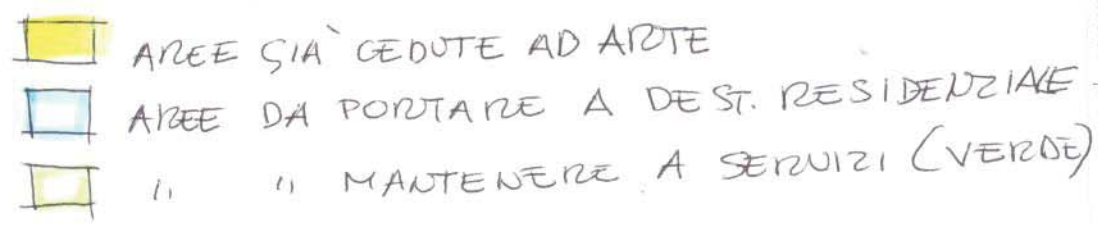 AREE GIA` CEDUTE AD ARTE
AREE DA PORTARE A DEST. RESIDENZIALE
" " MANTENERE A SERVIZI (VERDE)